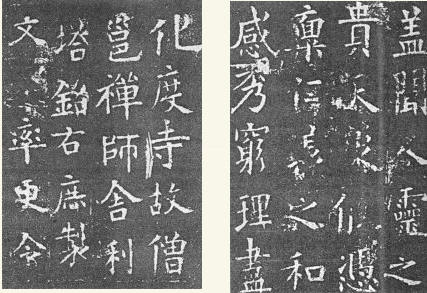 化度寺故僧
邕禪師舍利
塔銘右庶製
文率更令
盖聞人靈之
貴天象攸憑
稟仁義之和
感秀窮理盡